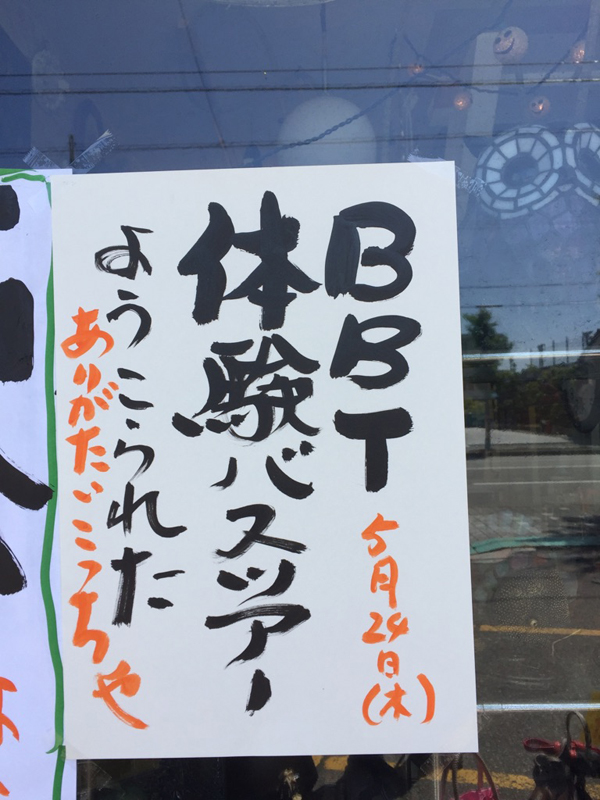 BBT
5月24日(木)
体験バスツアー
ようこられた
ありがたいこっちゃ